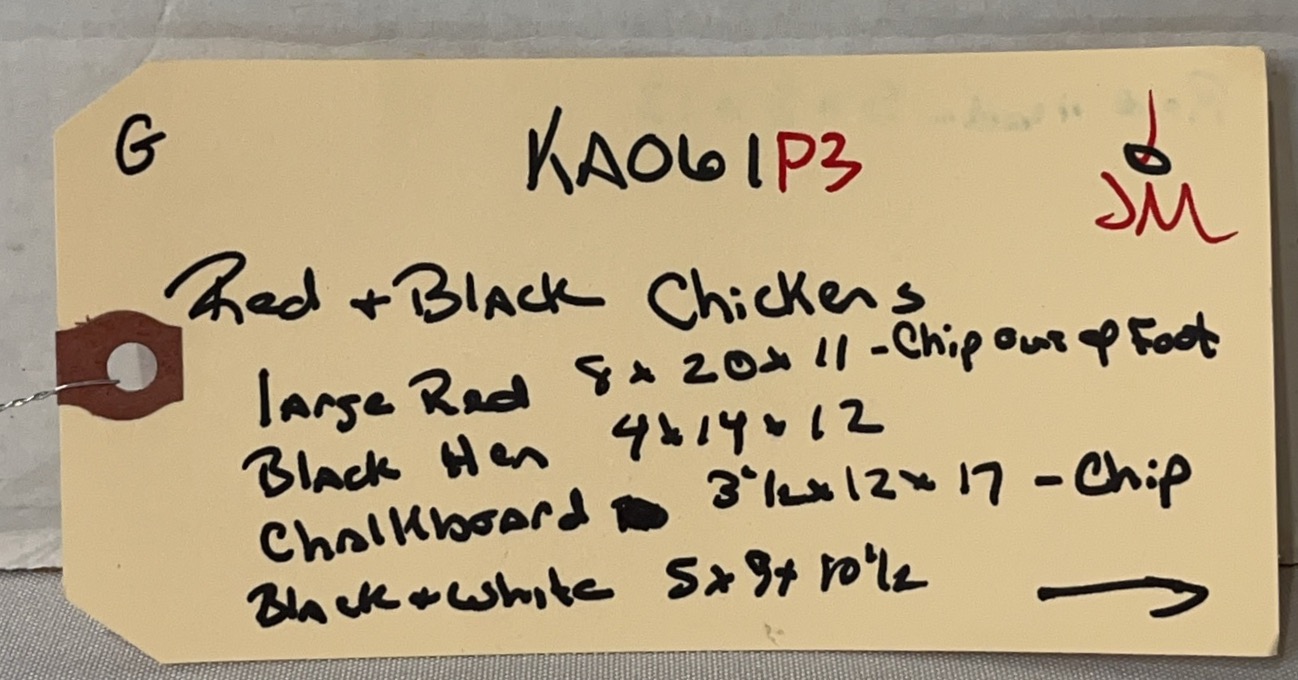 G KA061P3
JM
Red + Black Chickens
large Red 8 x 20 x 11 - Chip out of Foot
Black Hen 4 x 14 x 12
Chalkboard 3 1/2 x 12 x 17 - Chip
Black + White 5 x 9 x 10 1/2 →